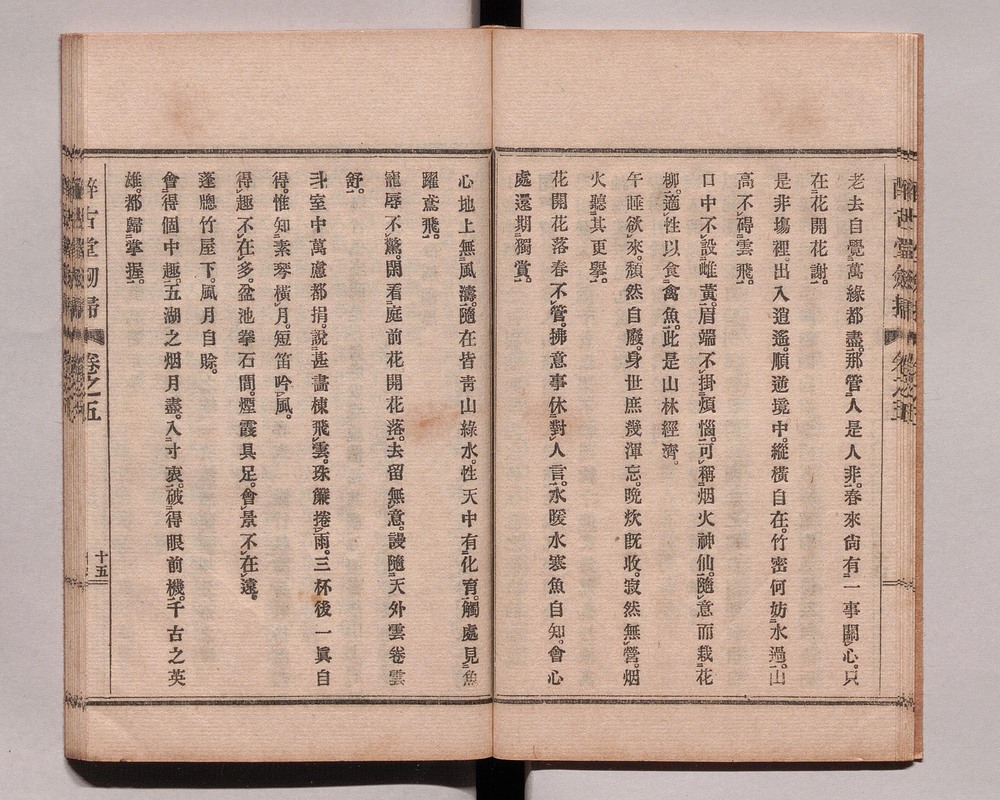 老去自覺萬緣都盡。那管人是人非。春來尙有一事關心。只
在花開花謝。
是非塲裡。出入逍遙。順逆境中。縱橫自在。竹密何妨水過。山
高不碍雲飛。
口中不設雌黃。眉端不掛煩惱。可稱烟火神仙。隨意而栽花
柳。適性以食禽魚。此是山林經濟。
午睡欲來。頹然自廢。身世庶幾渾忘。晩炊旣收。寂然無營。烟
火聽其更擧。
花開花落春不管。拂意事休對人言。水暖水寒魚自知。會心
處還期獨賞。
心地上無風濤。隨在皆靑山綠水。性天中有化育。觸處見魚
躍鳶飛。
寵辱不驚。閑看庭前花開花落。去留無意。謾隨天外雲卷雲
舒。
斗室中萬慮都捐。說甚畵棟飛雲。珠簾捲雨。三杯後一眞自
得。惟知素琴橫月。短笛吟風。
得趣不在多。盆池拳石間。煙霞具足。會景不在遠。
蓬牕竹屋下。風月自賖。
會得個中趣。五湖之烟月盡入寸衷。破得眼前機。千古之英
雄。都歸掌握。
醉古堂劒掃 卷之五
十五